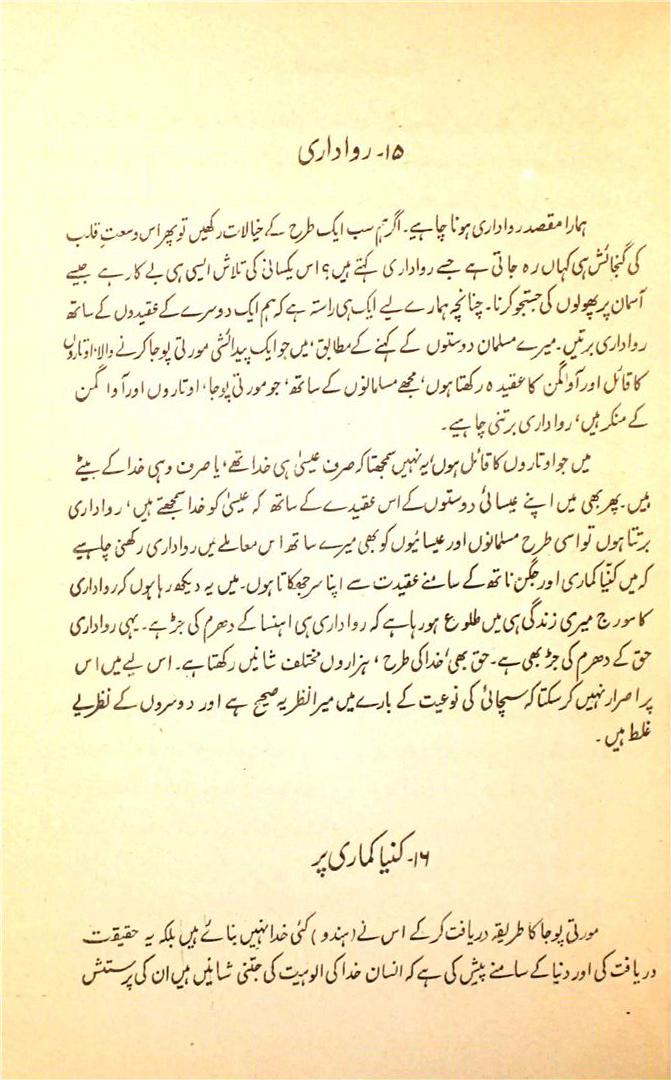 ۱۵۔ رواداری
ہمارا مقصد رواداری ہونا چاہیے۔ اگر ہم سب ایک طرح کے خیالات رکھیں تو پھر اس وسعتِ قلب
کی گنجائش ہی کہاں رہ جاتی ہے جسے رواداری کہتے ہیں؟ اس یکسانی کی تلاش ایسی ہی بے کار ہے جیسے
آسمان پر پھولوں کی جستجو کرنا۔ چنانچہ ہمارے لیے ایک ہی راستہ ہے کہ ہم ایک دوسرے کے عقیدوں کے ساتھ
رواداری برتیں۔ میرے مسلمان دوستوں کے کہنے کے مطابق، میں جو ایک پیدائشی مورتی پوجا کرنے والا، اوتاروں
کا قائل اور آواگمن کا عقیدہ رکھتا ہوں، مجھے مسلمانوں کے ساتھ، جو مورتی پوجا، اوتاروں اور آواگمن
کے منکر ہیں، رواداری برتنی چاہیے۔
میں جو اوتاروں کا قائل ہوں، یہ نہیں سمجھتا کہ صرف عیسیٰ ہی خدا تھے، یا صرف وہی خدا کے بیٹے
ہیں۔ پھر بھی میں اپنے عیسائی دوستوں کے اس عقیدے کے ساتھ کہ عیسیٰ کو خدا سمجھتے ہیں، رواداری
برتتا ہوں تو اسی طرح مسلمانوں اور عیسائیوں کو بھی میرے ساتھ اس معاملے میں رواداری رکھنی چاہیے
کہ میں کنیا کماری اور جگن ناتھ کے سامنے عقیدت سے اپنا سر جھکاتا ہوں۔ میں یہ دیکھ رہا ہوں کہ رواداری
کا سورج میری زندگی ہی میں طلوع ہو رہا ہے کہ رواداری ہی اہنسا کے دھرم کی جڑ ہے۔ یہی رواداری
حق کے دھرم کی جڑ بھی ہے۔ حق بھی، خدا کی طرح، ہزاروں مختلف شانیں رکھتا ہے۔ اس لیے میں اس
پر اصرار نہیں کر سکتا کہ سچائی کی نوعیت کے بارے میں میرا نظریہ صحیح ہے اور دوسروں کے نظریے
غلط ہیں۔
۱۶۔ کنیا کماری پر
مورتی پوجا کا طریقہ دریافت کر کے اس نے (ہندو) کئی خدا نہیں بنائے ہیں بلکہ یہ حقیقت
دریافت کی اور دنیا کے سامنے پیش کی ہے کہ انسان خدا کی الوہیت کی جتنی شانیں ہیں ان کی پرستش